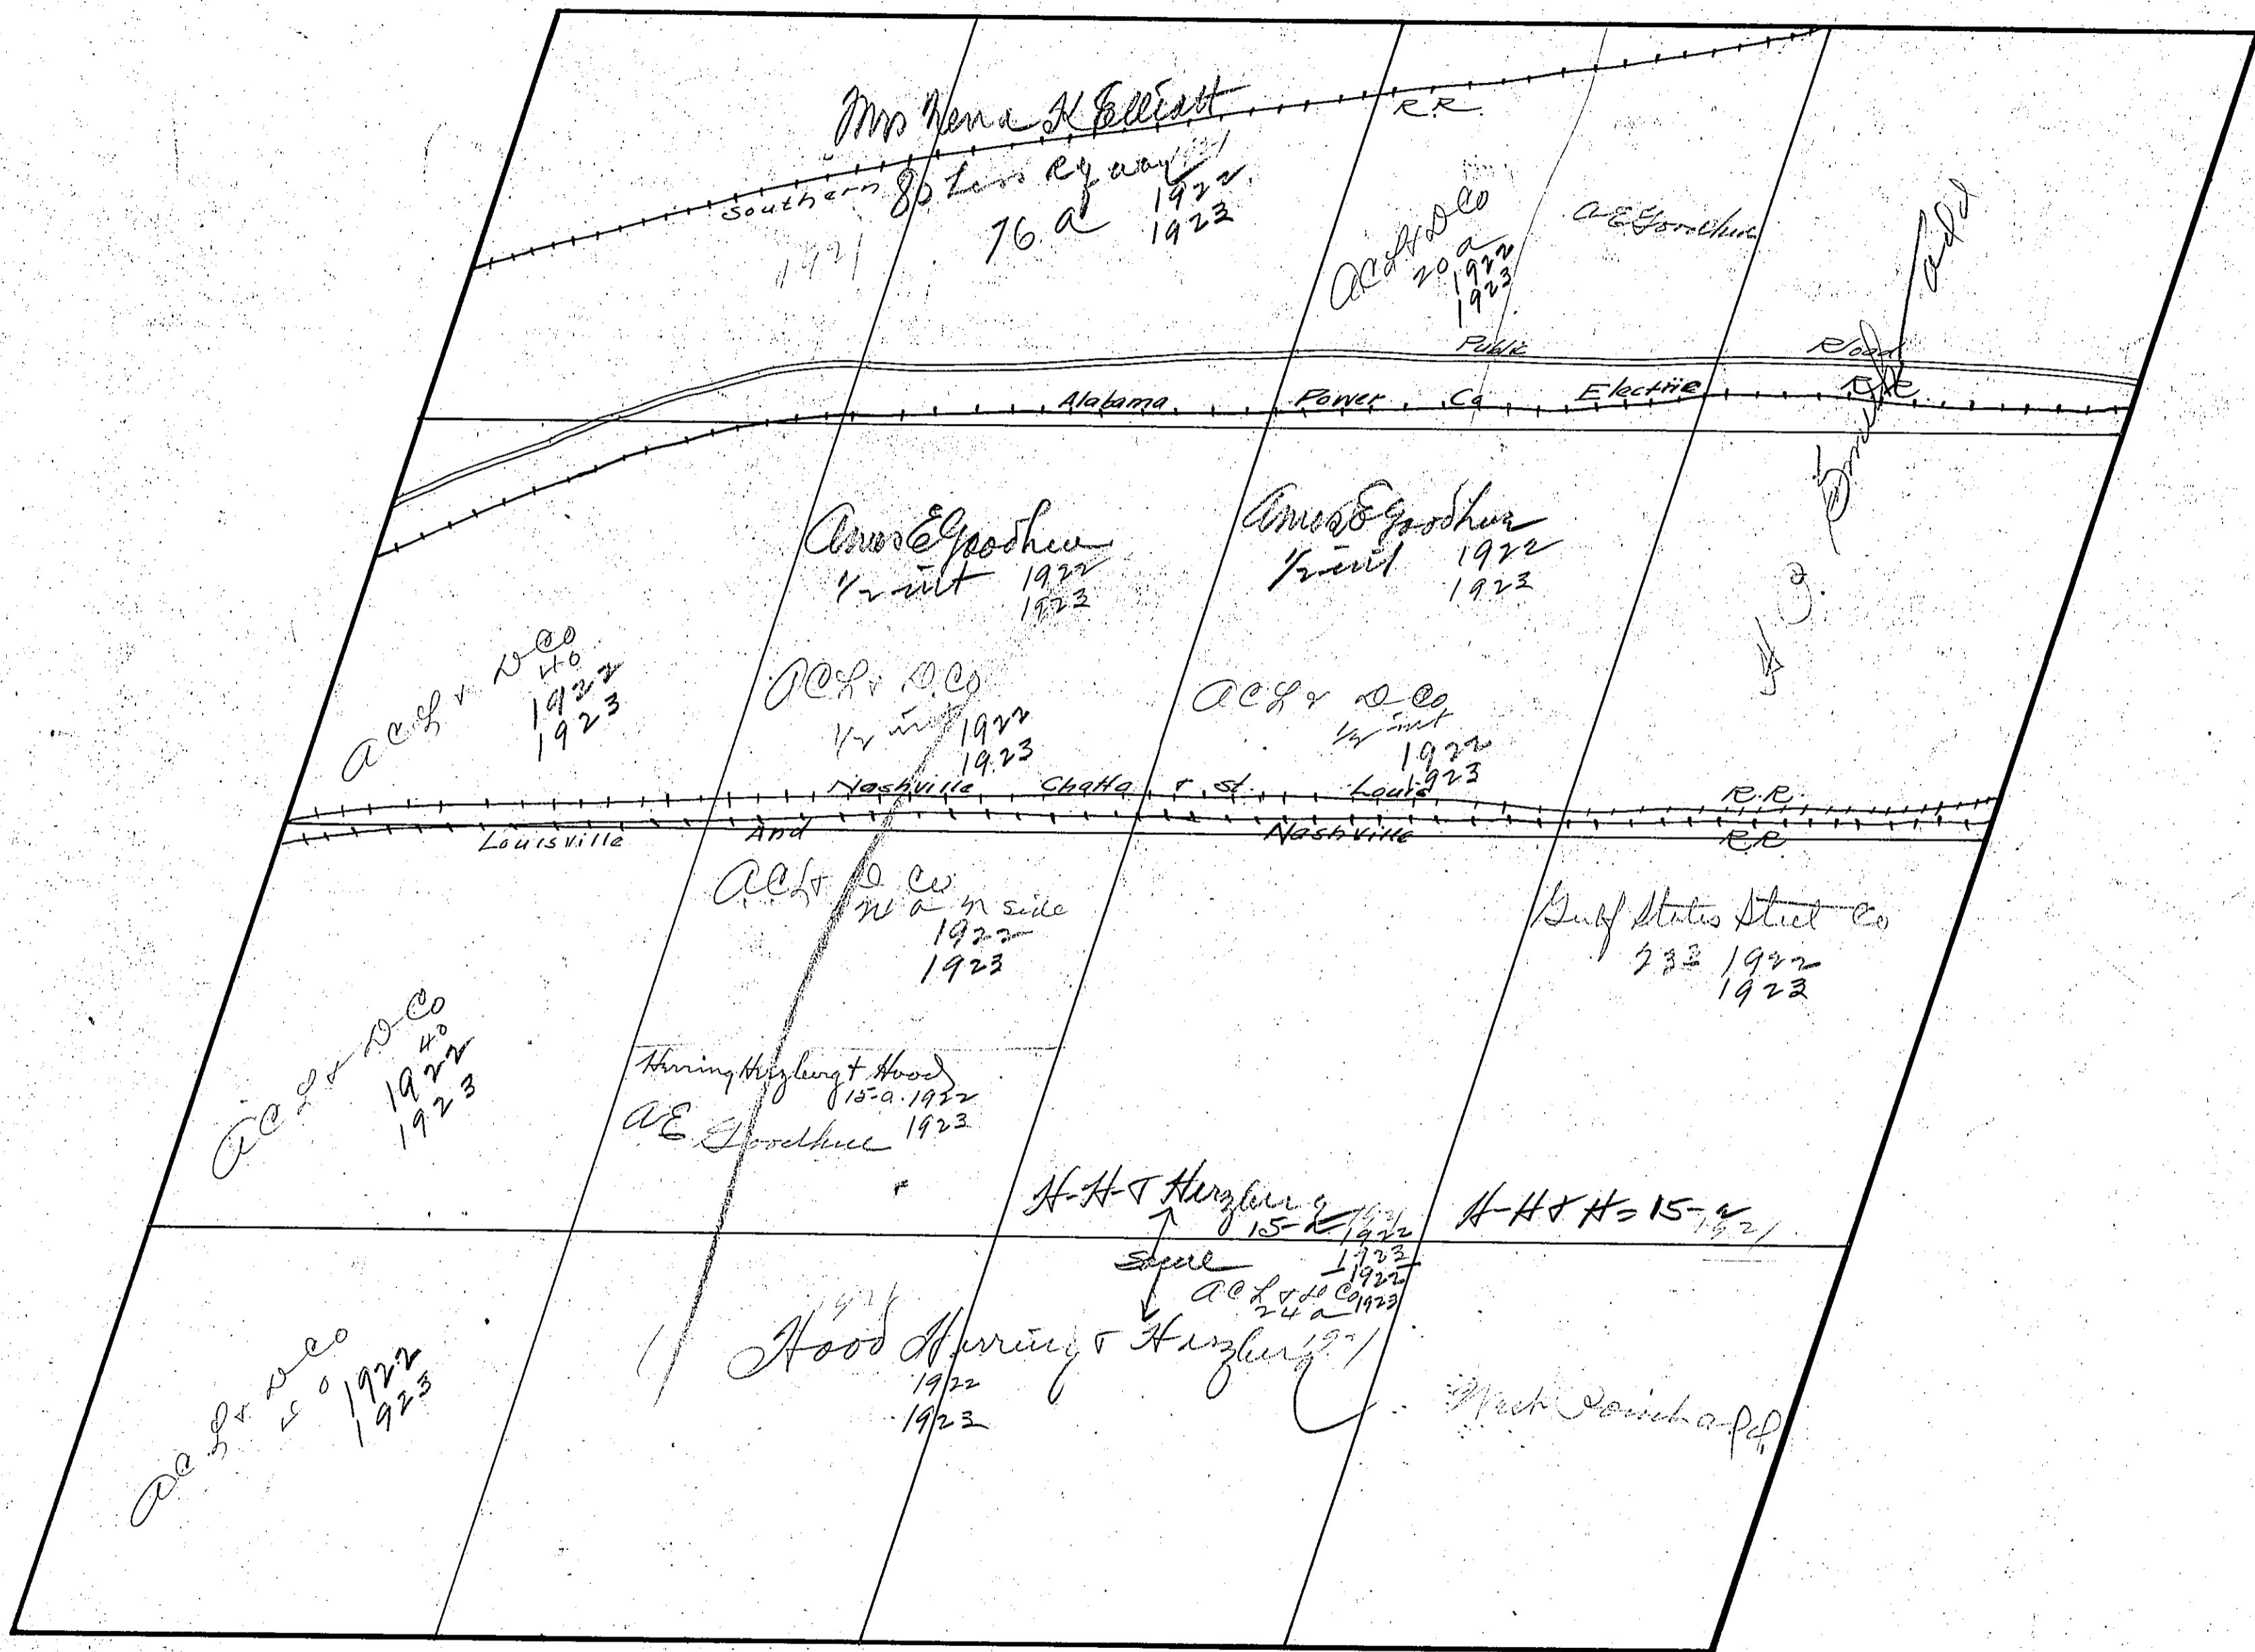 Mrs Nena K Elliott
R.R.
Southern 80 Less R of way 1921
76 a 1922
1923
1921
A C L & D Co
20 a
1922
1923
A E Goodhue
Public Road
Alabama Power Co Electric R.R.
Amos E Goodhue
1/2 int 1922
1923
Amos E Goodhue
1/2 int 1922
1923
A C L & D Co
40
1922
1923
A C L & D. Co
1/2 int 1922
1923
A C L & D Co
1/2 int
1922
1923
Nashville Chatta & St. Louis R.R.
Louisville And Nashville R.R.
A C L & D Co
a n side
1922
1923
Gulf States Steel Co
1922
1923
A C L & D Co
40
1922
1923
Herring Herzburg & Hood
15-a. 1922
1923
A E Goodhue
H-H-& Herzburg
15-a 1921
1922
1923
H-H & H = 15-a
1921
Same
1922
A C L & D Co
24 a 1923
1921
Hood Herring & Herzburg 1921
1922
1923
A C L & D Co
1922
1923